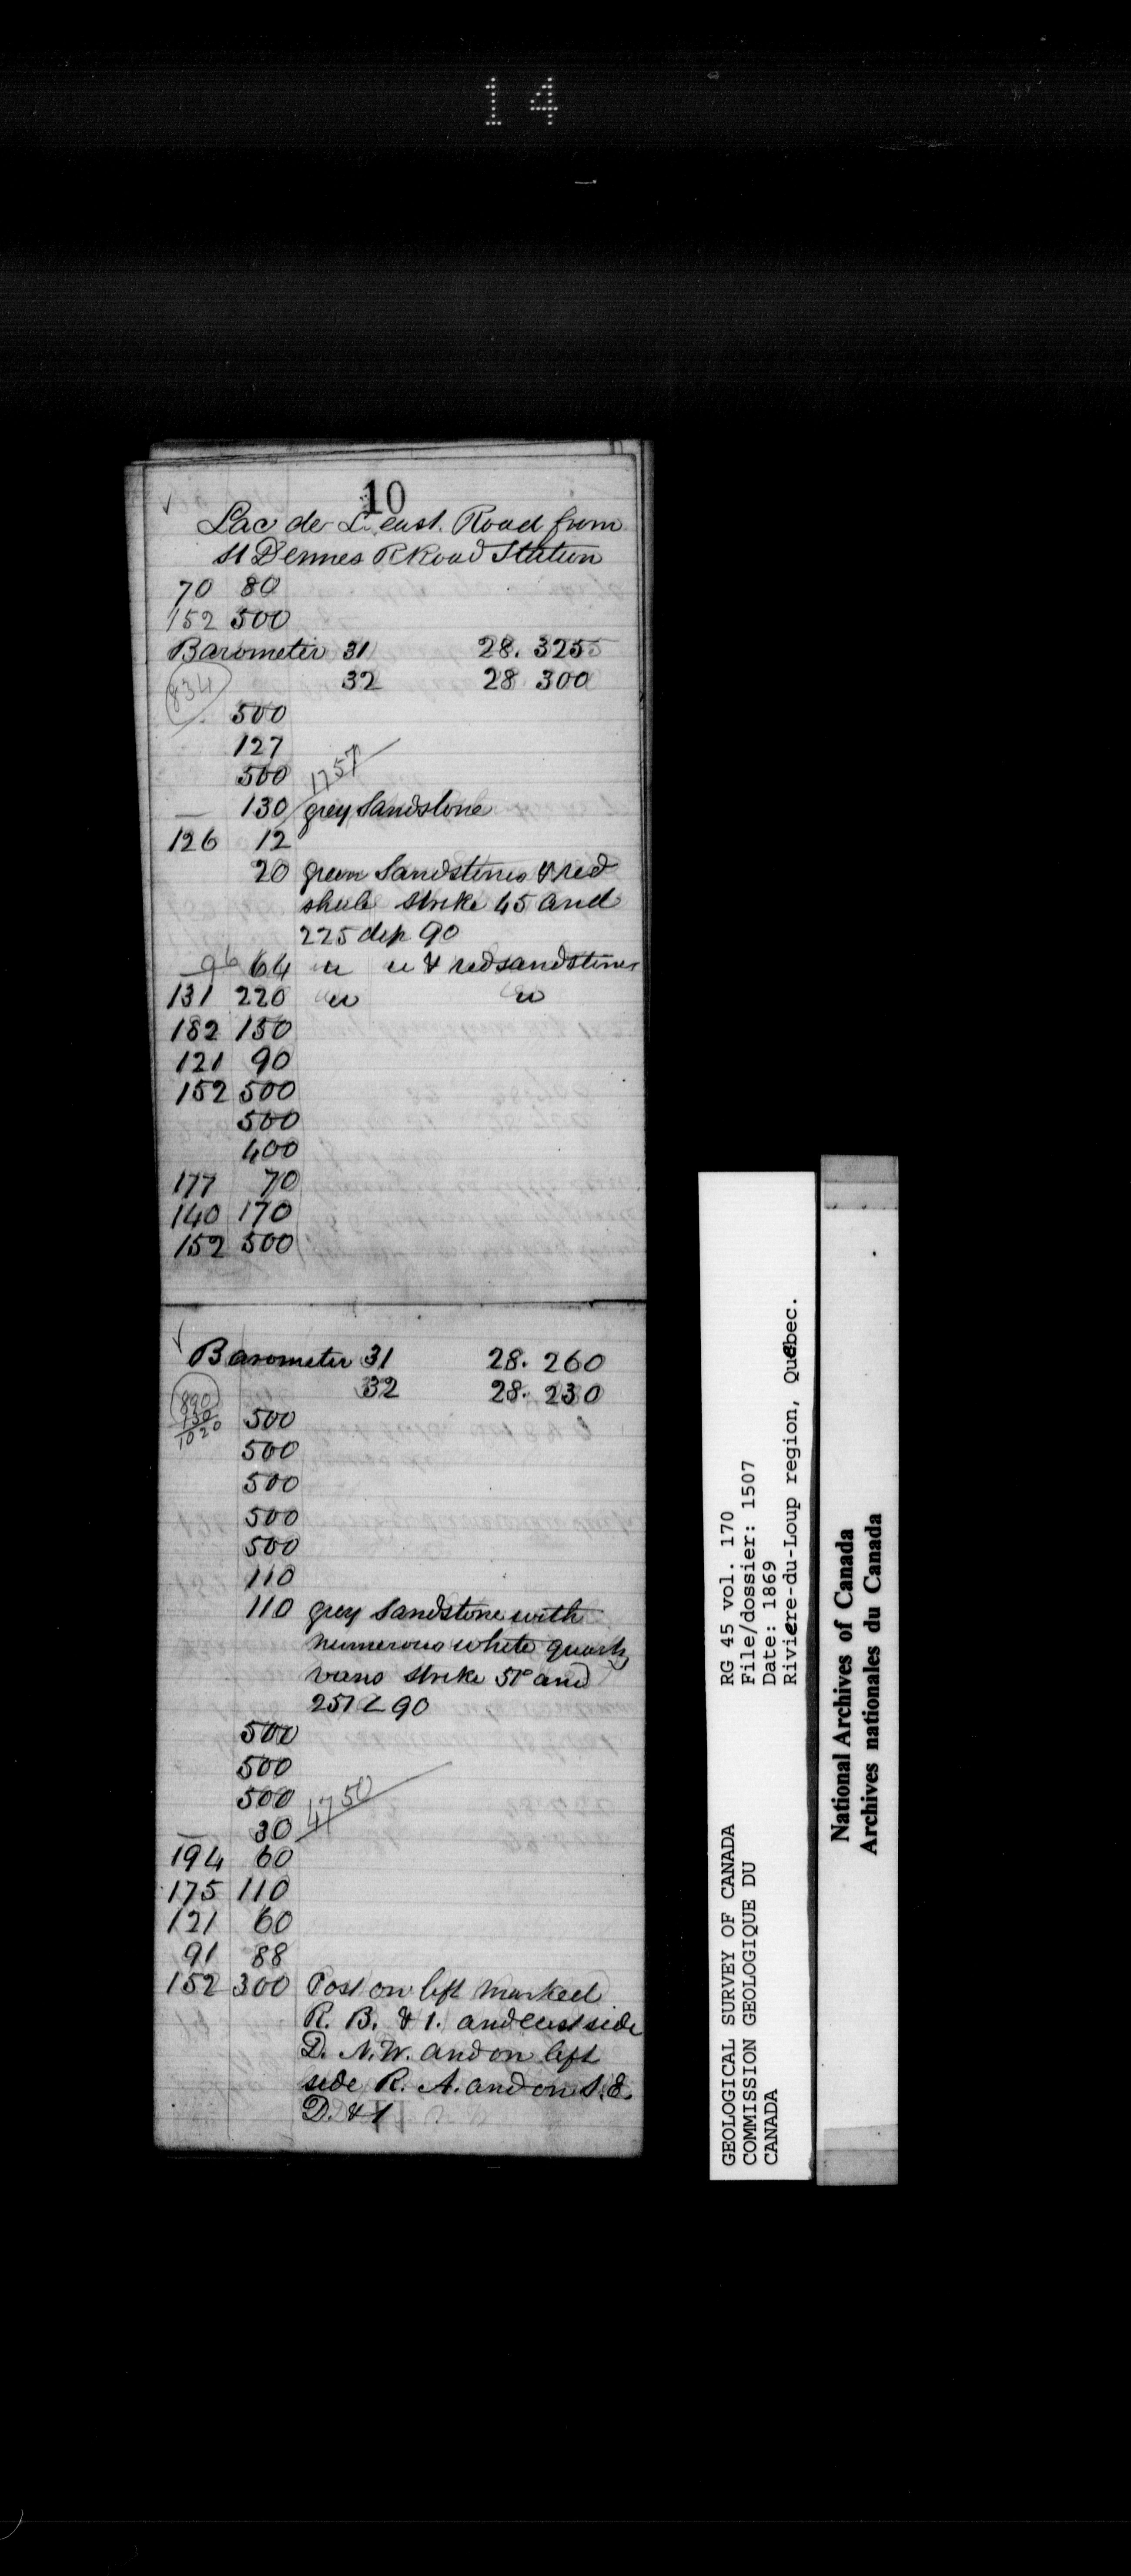 14
10
Lac de L. east. Road from
St Dennes R Road Station
70 80
152 500
Barometer 31 28. 3255
834 32 28 300
500
127
500 1757
130 grey Sandstone
126 12
20 green Sandstones & red
shale strike 45 and
225 dip 90
96 64 " " & red sandstones
131 220 " "
182 150
121 90
152 500
500
400
177 70
140 170
152 500
Barometer 31 28. 260
32 28. 230
890
130
1020
500
500
500
500
500
110
110 grey Sandstone with
numerous white quartz
vains strike 51° and
251 L 90
500
500
500 4750
30
194 60
175 110
121 60
91 88
152 300 Post on left marked
R. B. & 1. and east side
D. N.W. and on left
side R. A. and on S.E.
D. & 1
GEOLOGICAL SURVEY OF CANADA
COMMISSION GEOLOGIQUE DU
CANADA
RG 45 vol. 170
File/dossier: 1507
Date: 1869
Riviere-du-Loup region, Quebec.
National Archives of Canada
Archives nationales du Canada